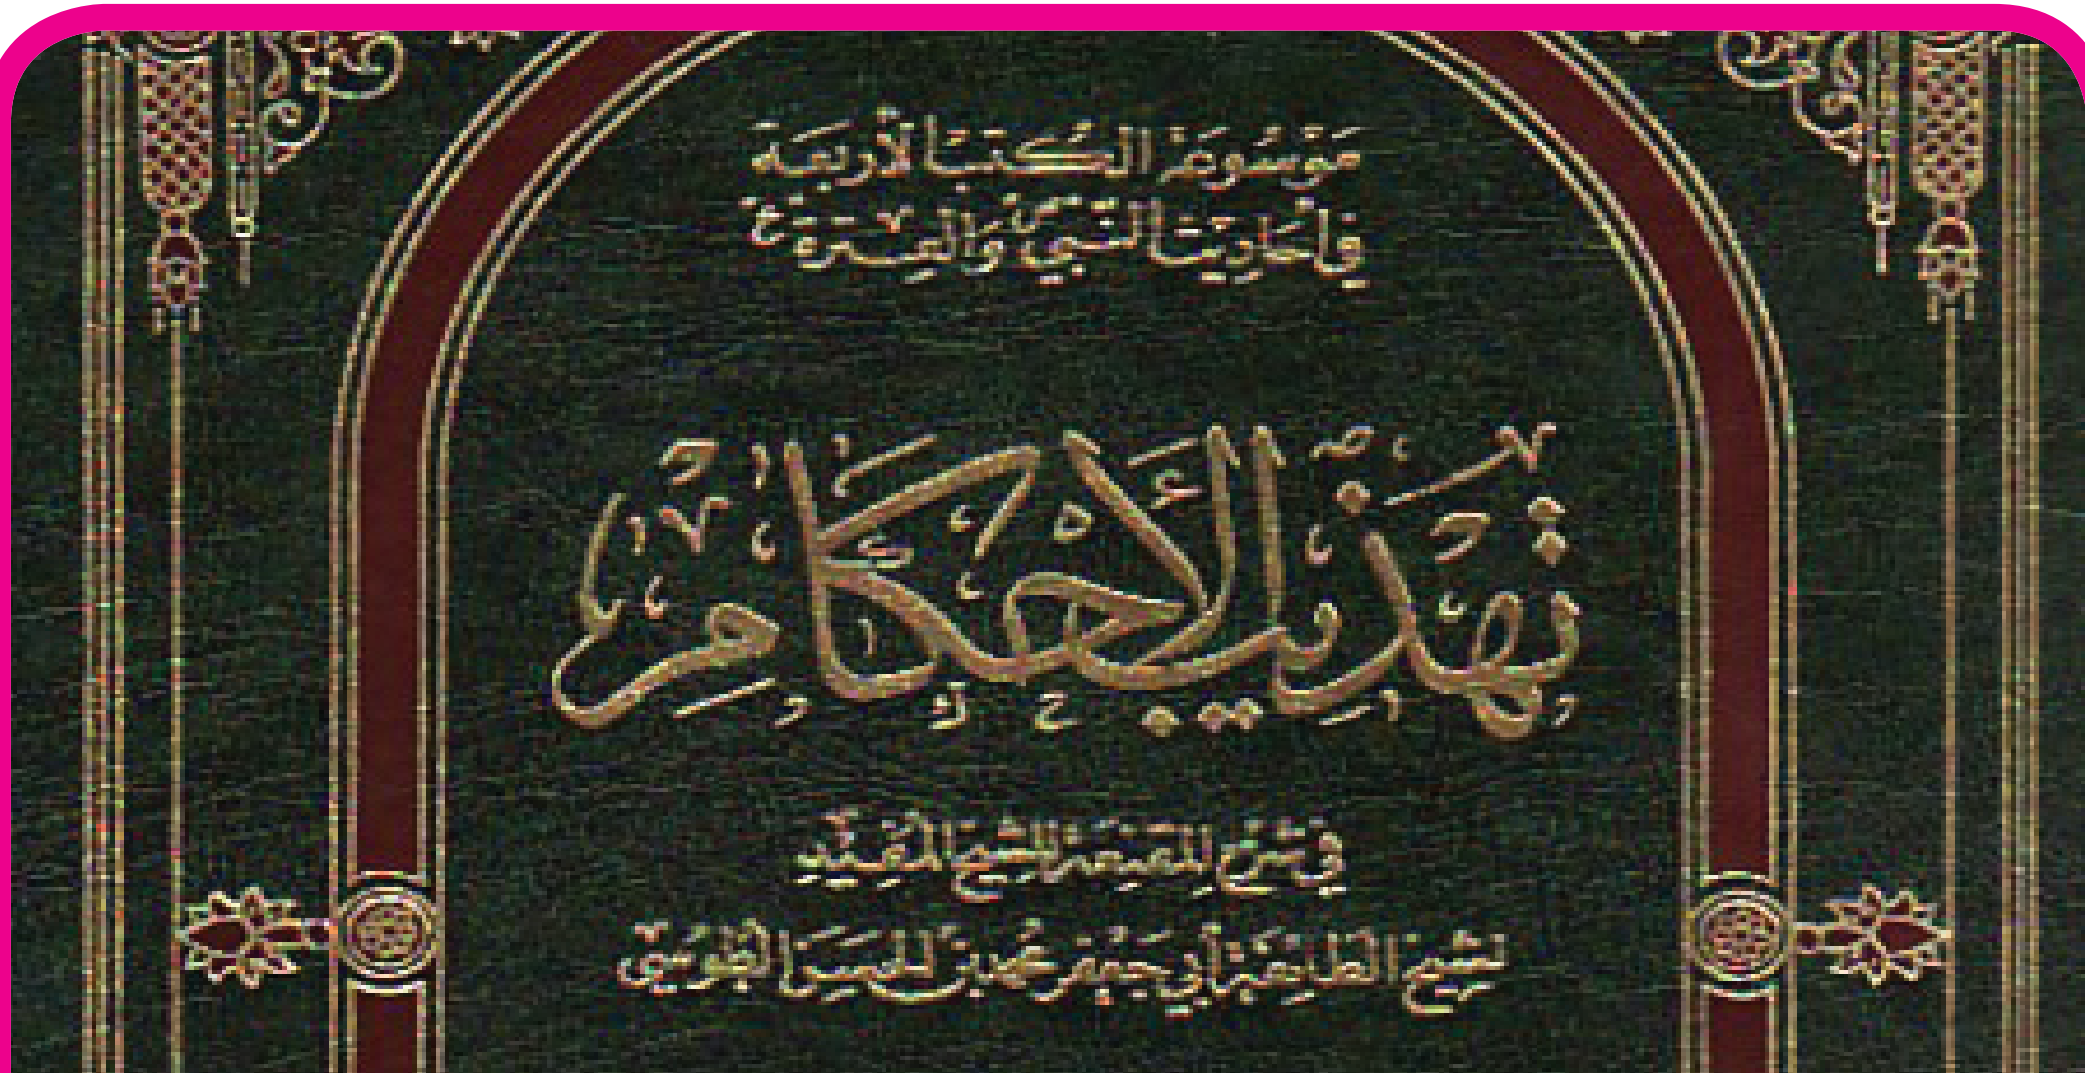 موسوعة الكتب الأربعة
في أحاديث النبي والعترة ع
تهذيب الأحكام
في شرح المقنعة للشيخ المفيد
لشيخ الطائفة أبي جعفر محمد بن الحسن الطوسي